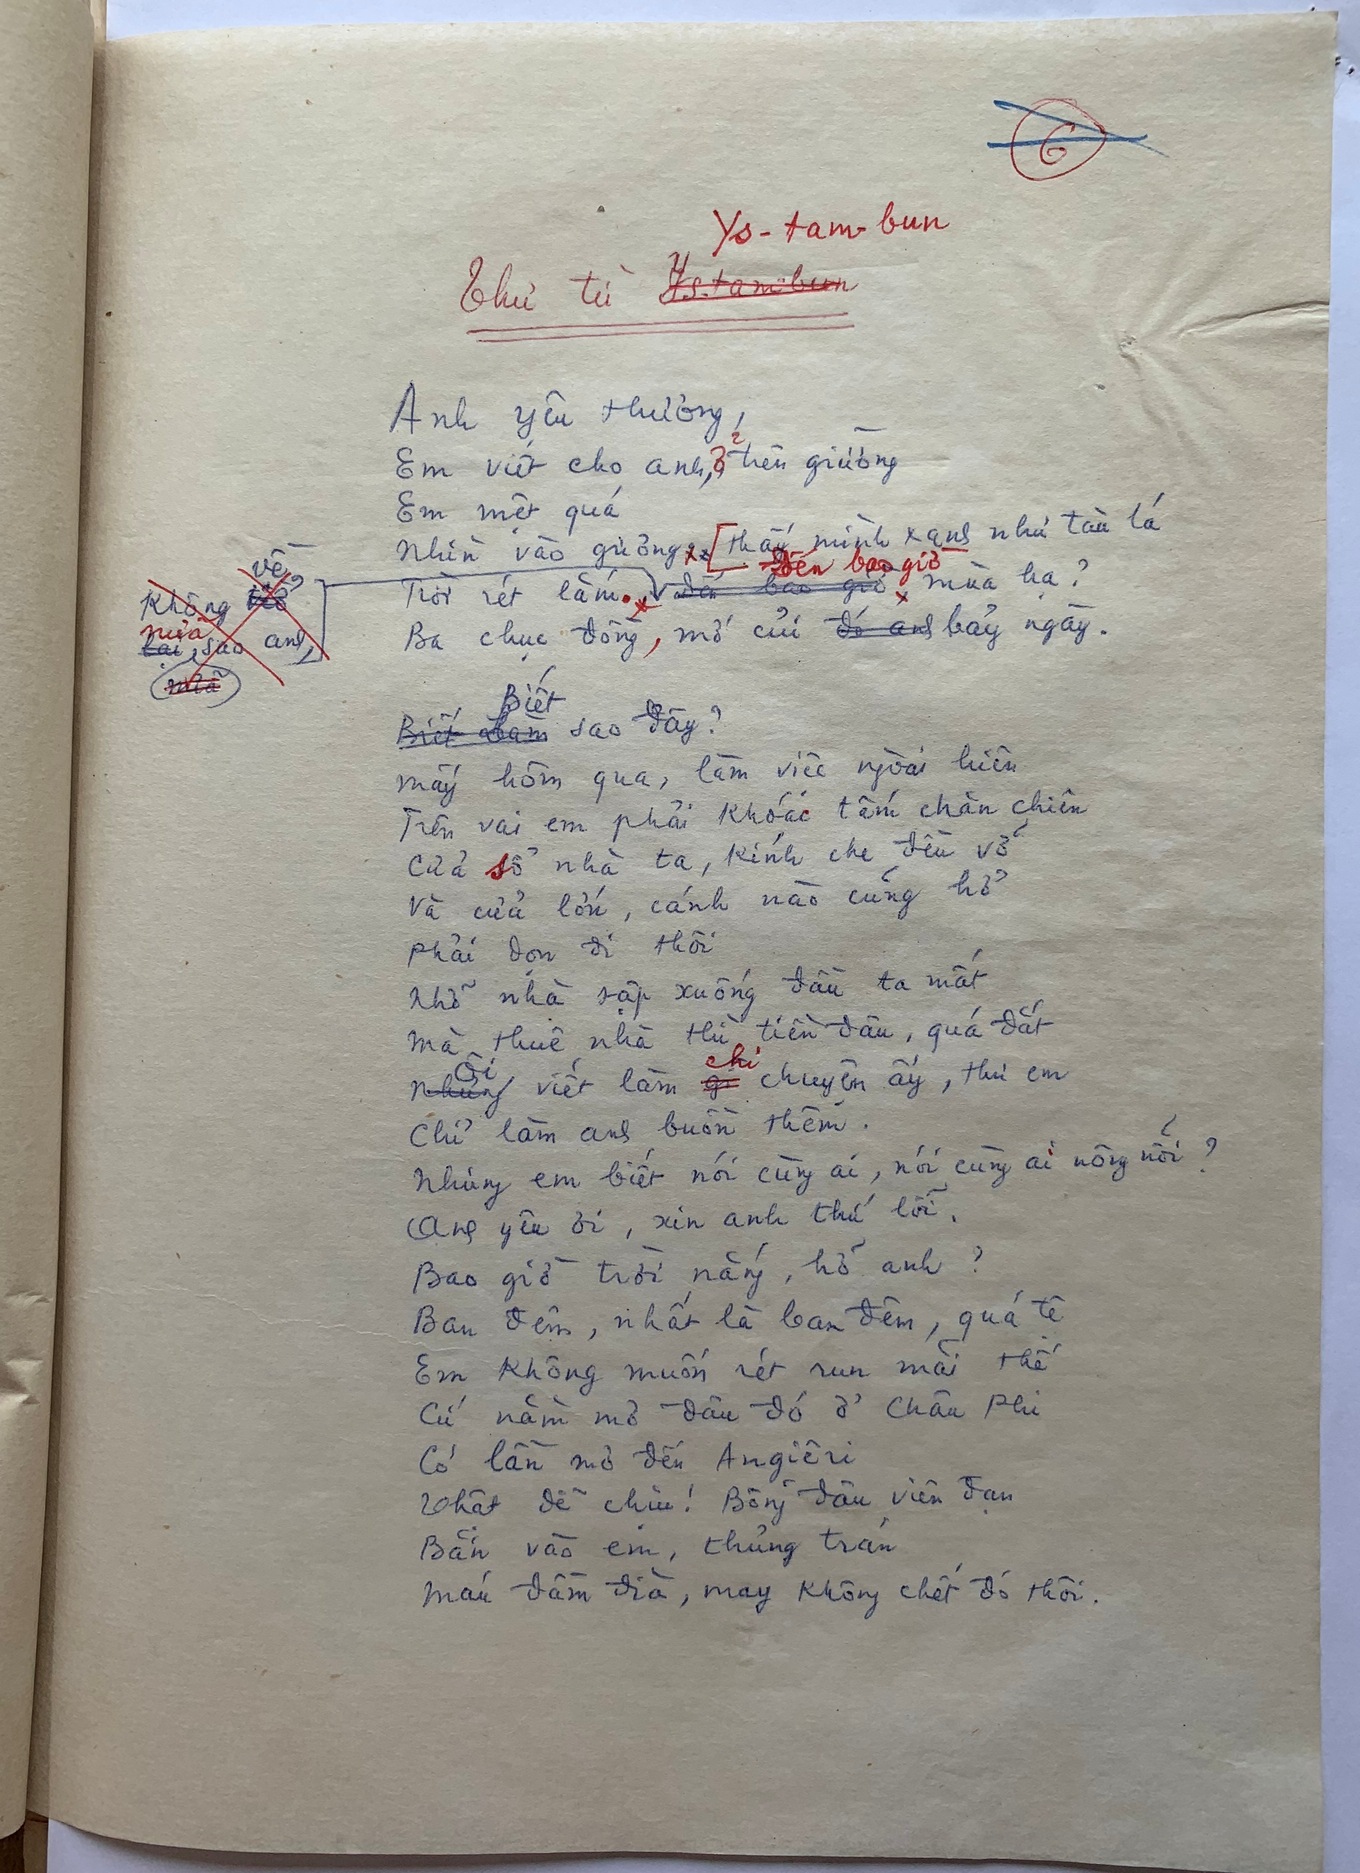 6
Ys-tam-bun
Thư từ Ys-tam-bun
Anh yêu thương,
Em viết cho anh, ở trên giường
Em mệt quá
Nhìn vào gương, [thấy mình xanh như tàu lá
đến bao giờ
Trời rét lắm. đến bao giờ mùa hạ?
Ba chục đồng, mớ củi đó anh bảy ngày.
về
Không
nữa
lại, sao anh,
Biết
Biết làm sao đây?
Mấy hôm qua, làm việc ngoài hiên
Trên vai em phải khoác tấm chăn chiên
Cửa sổ nhà ta, kính che đều vỡ
Và cửa lớn, cánh nào cũng hở
Phải dọn đi thôi
Nhỡ nhà sập xuống đầu ta mất
Mà thuê nhà thì tiền đâu, quá đắt
Ôi chi
Nhưng viết làm gì chuyện ấy, thư em
Chỉ làm anh buồn thêm.
Nhưng em biết nói cùng ai, nói cùng ai nông nỗi?
Anh yêu ơi, xin anh thứ lỗi.
Bao giờ trời nắng, hở anh?
Ban đêm, nhất là ban đêm, quá tệ
Em không muốn rét run mãi thế
Cứ nằm mơ đâu đó ở Châu Phi
Có lần mơ đến Angiêri
Thật dễ chịu! Bỗng đâu viên đạn
Bắn vào em, thủng trán
Máu đầm đìa, may không chết đó thôi.